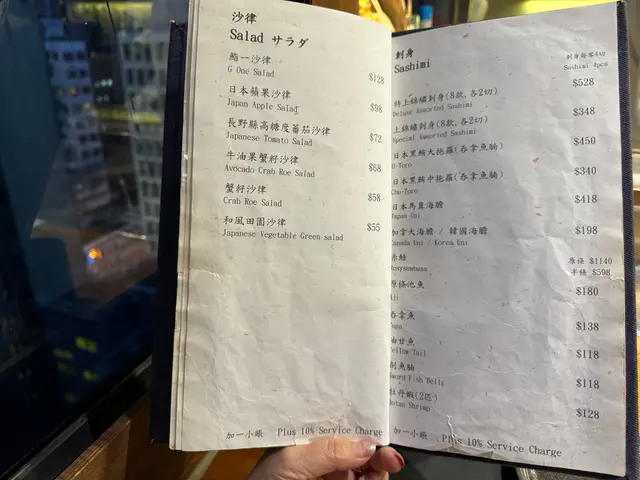 沙律
Salad サラダ
鮨一沙律
G One Salad
$128
日本蘋果沙律
Japan Apple Salad
$98
長野縣高糖度蕃茄沙律
Japanese Tomato Salad
$72
牛油果蟹籽沙律
Avocado Crab Roe Salad
$68
蟹籽沙律
Crab Roe Salad
$58
和風田園沙律
Japanese Vegetable Green salad
$55
加一小賬 Plus 10% Service Charge
刺身
Sashimi
刺身每客4切
Sashimi 4pcs
特上錦繡刺身(8款,各2切)
Deluxe Assorted Sashimi
$528
上錦繡刺身(8款,各2切)
Special Assorted Sashimi
$348
日本黑鮪大拖羅(吞拿魚腩)
O-Toro
$450
日本黑鮪中拖羅(吞拿魚腩)
Chu-Toro
$340
日本馬糞海膽
Japan Uni
$418
加拿大海膽 / 韓國海膽
Canada Uni / Korea Uni
$198
赤鯥
原條 $1140
半條 $598
原條池魚
Aji
$180
吞拿魚
$138
油甘魚
Yellow Tail
$118
劍魚腩
Sword Fish Bells
$118
牡丹蝦(2匹)
Botan Shrimp
$128
加一小賬 Plus 10% Service Charge